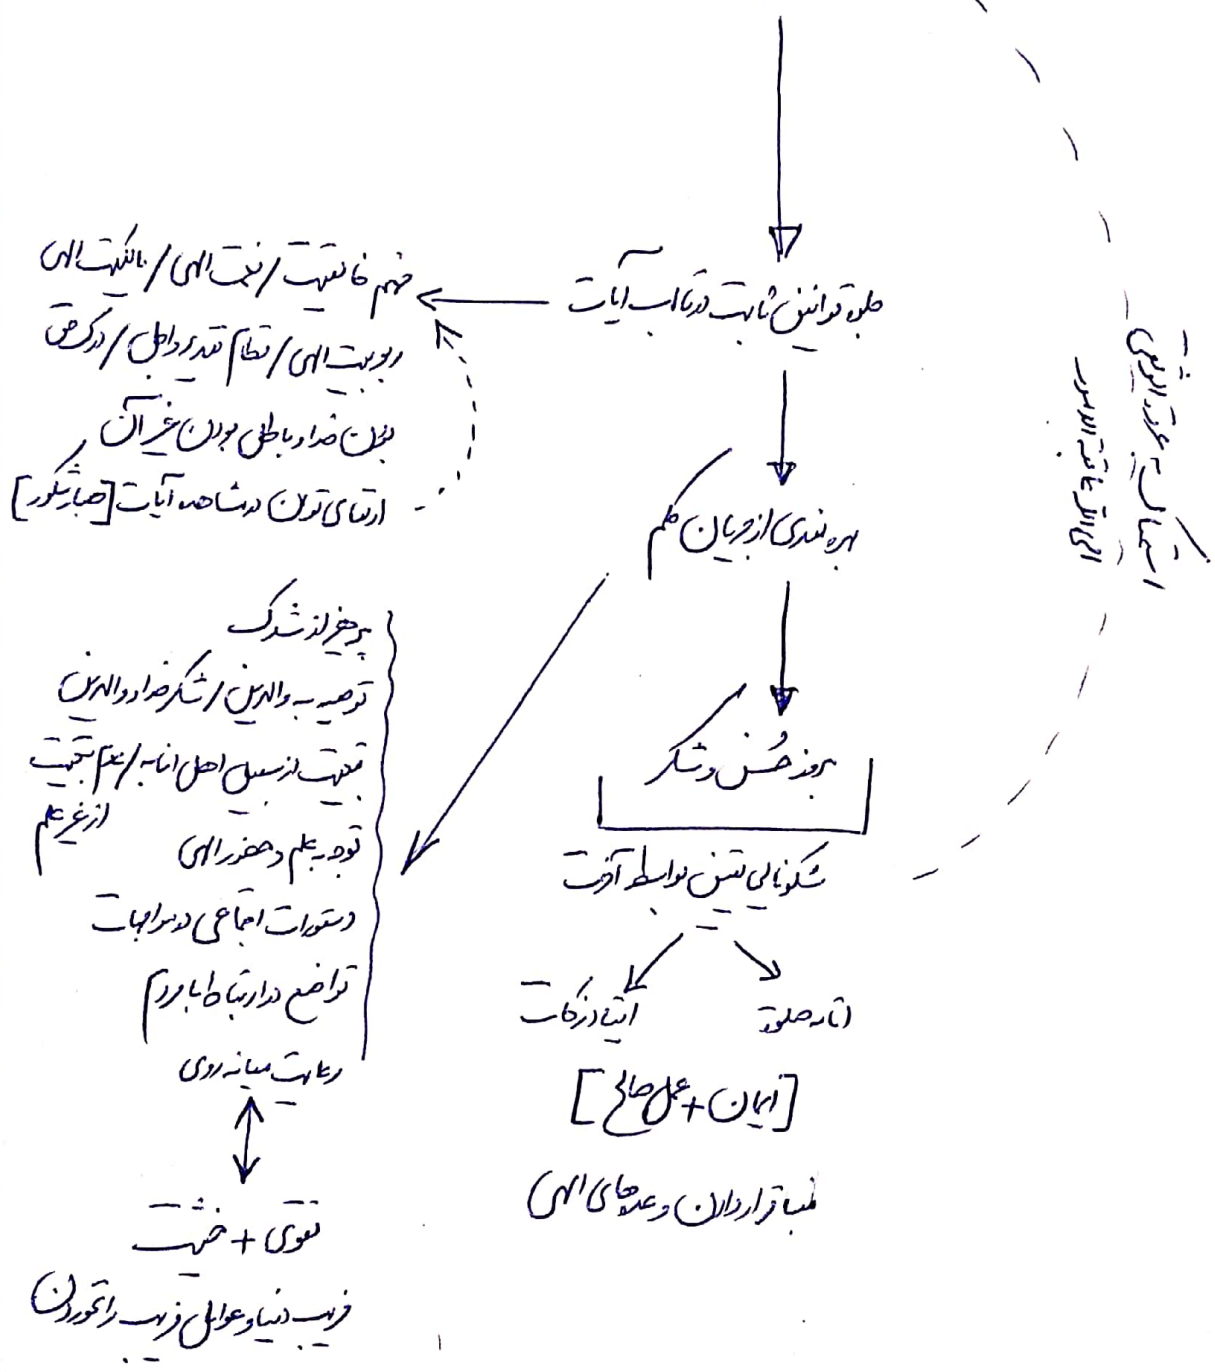 جلوه قوانین ثابت در قالب آیات
فهم خالقیت / نعمت الهی / مالکیت الهی
ربوبیت الهی / نظام تقدیر و اجل / درک حق
بودن خدا و باطل بودن غیر آن
ارتقای توان مشاهده آیات [صبار شکور]
بهره‌مندی از جریان حکم
بروز حُسن و شکر
شکوفایی یقین بواسطه آخرت
اقامه صلوة
ایتاء زکات
[ایمان + عمل صالح]
مبنا قرار دادن وعده‌های الهی
پرهیز از شرک
توصیه به والدین / شکر خدا و والدین
تبعیت از سبیل اهل انابه / عدم تبعیت
از غیر علم
توجه به علم و حضور الهی
دستورات اجتماعی و مراقبات
تواضع در ارتباط با مردم
رعایت میانه روی
تقوی + خشیت
فریب دنیا و عوامل فریب را نخوردن
استمساک به عروة الوثقی
الی الله عاقبة الامور